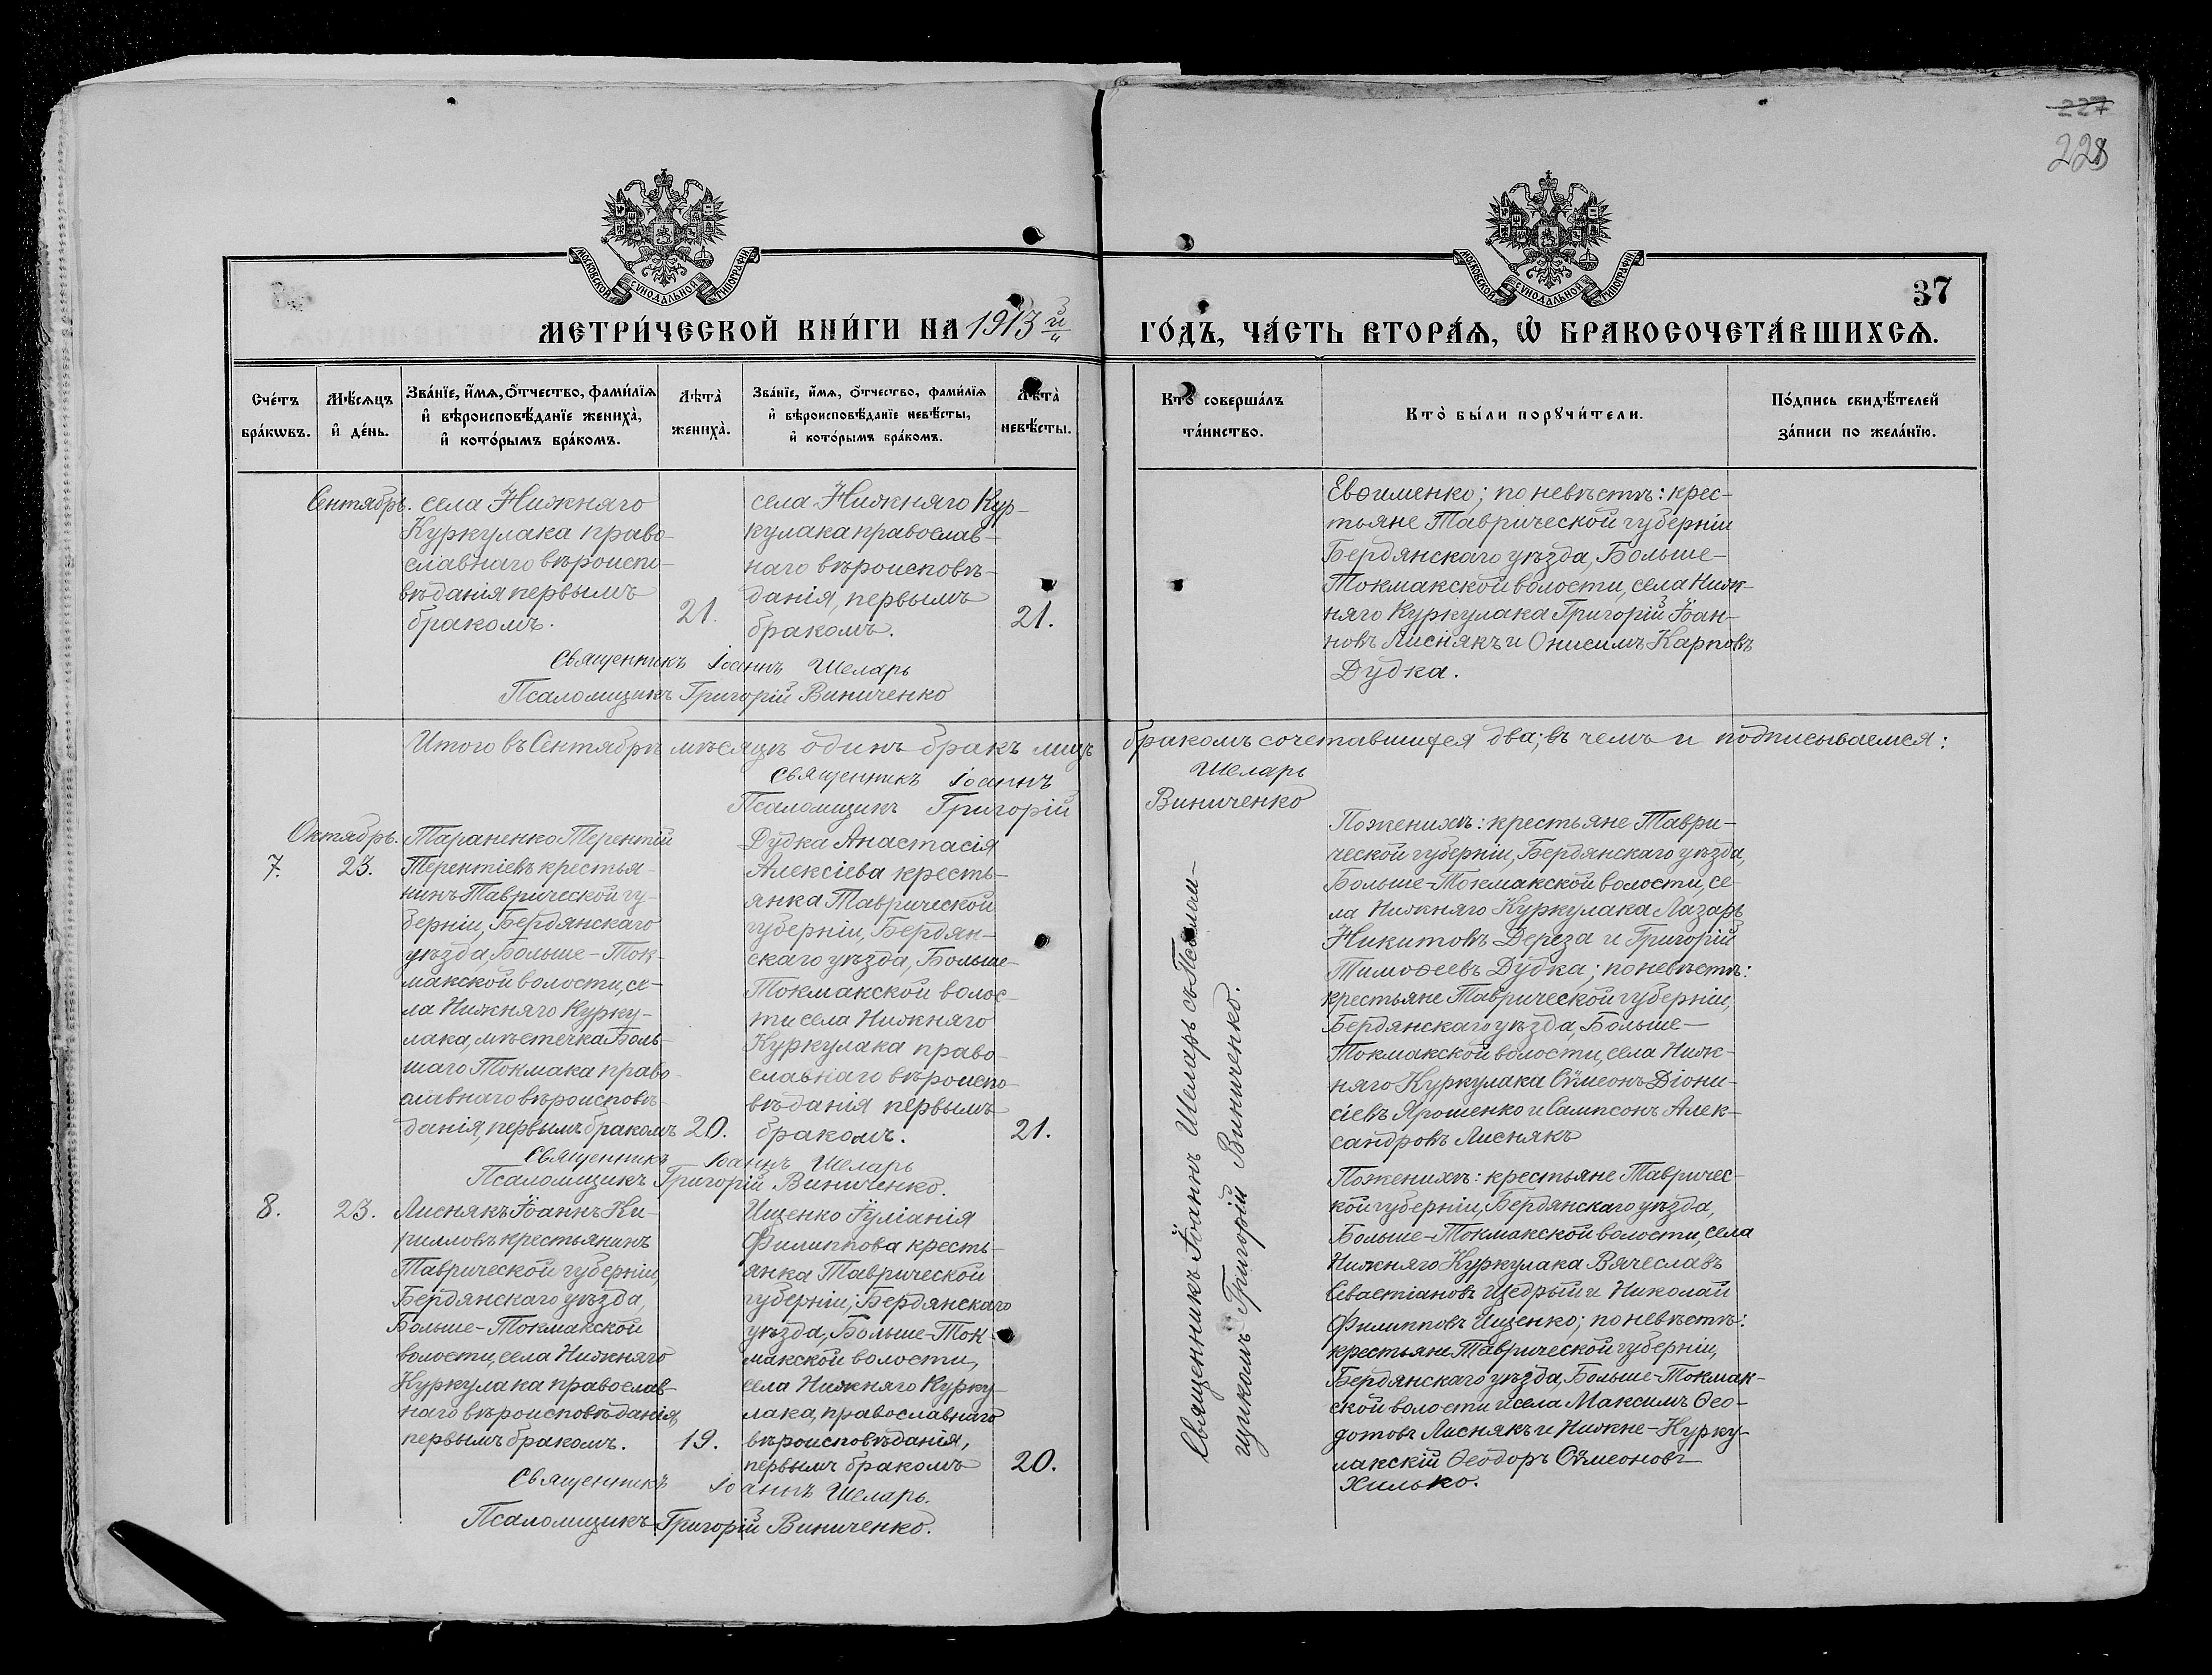 227
228
МОСКОВСКОЙ СѴНОДАЛЬНОЙ ТИПОГРАФІИ
МОСКОВСКОЙ СѴНОДАЛЬНОЙ ТИПОГРАФІИ
37
МЕТРИ́ЧЕСКОЙ КНИ́ГИ НА 1913й
ГО́ДЪ, ЧА́СТЬ ВТОРА́Ѧ, Ѽ БРАКОСОЧЕТА́ВШИХСѦ.
Сче́тъ бра́кѡвъ.
Мѣ́сѧцъ и҆ де́нь.
Зва́нїе, и҆́мѧ, ѻ҆́тчество, фами́лїѧ и҆ вѣроисповѣ́данїе жениха̀, и҆ кото́рымъ бра́комъ.
Лѣта̀ жениха̀.
Зва́нїе, и҆́мѧ, ѻ҆́тчество, фами́лїѧ и҆ вѣроисповѣ́данїе невѣ́сты, и҆ кото́рымъ бра́комъ.
Лѣта̀ невѣ́сты.
Кто̀ соверша́лъ та́инство.
Кто̀ бы́ли порꙋчи́тели.
По́дпись свидѣ́телей за́писи по жела́нїю.
Сентябрь.
села Нижняго
Куркулака право-
славнаго вѣроиспо-
вѣданія первымъ
бракомъ.
21.
села Нижняго Кур-
кулака православ-
наго вѣроисповѣ-
данія, первымъ
бракомъ.
21.
Евѳименко; по невѣстѣ: крес-
тьяне Таврической губерніи
Бердянскаго уѣзда, Больше-
Токмакской волости, села Ниж-
няго Куркулака Григорій Іоан-
новъ Лиснякъ и Онисимъ Карповъ
Дудка.
Священникъ Іоаннъ Шеларь
Псаломщикъ Григорій Виниченко
Итого въ Сентябрѣ мѣсяцѣ одинъ бракъ лицъ бракомъ сочетавшихся два; въ чемъ и подписываемся:
Священникъ Іоаннъ Шеларь
Псаломщикъ Григорій Виниченко
Октябрь.
7.
23.
Тараненко Терентій
Терентіевъ крестья-
нинъ Таврической гу-
берніи, Бердянскаго
уѣзда, Больше-Ток-
макской волости, се-
ла Нижняго Курку-
лака, мѣстечка Боль-
шаго Токмака право-
славнаго вѣроисповѣ-
данія, первымъ бракомъ
20.
Дудка Анастасія
Алексіева кресть-
янка Таврической
губерніи, Бердян-
скаго уѣзда, Больше-
Токмакской волос-
ти села Нижняго
Куркулака право-
славнаго вѣроиспо-
вѣданія первымъ
бракомъ.
21.
Священникъ Іоаннъ Шеларь съ Псалом-
щикомъ Григорій Виниченко.
По женихѣ: крестьяне Таври-
ческой губерніи, Бердянскаго уѣзда,
Больше-Токмакской волости, се-
ла Нижняго Куркулака Лазарь
Никитовъ Дереза и Григорій
Тимоѳеевъ Дудка; по невѣстѣ:
крестьяне Таврической губерніи,
Бердянскаго уѣзда, Больше-
Токмакской волости, села Ниж-
няго Куркулака Сѵмеонъ Діони-
сіевъ Ярошенко и Сампсонъ Алек-
сандровъ Лиснякъ
Священникъ Іоаннъ Шеларь
Псаломщикъ Григорій Виниченко.
8.
23.
Лиснякъ Іоаннъ Ки-
рилловъ крестьянинъ
Таврической губерніи,
Бердянскаго уѣзда,
Больше-Токмакской
волости, села Нижняго
Куркулака православ-
наго вѣроисповѣданія,
первымъ бракомъ.
19.
Ищенко Іуліанія
Филиппова кресть-
янка Таврической
губерніи, Бердянскаго
уѣзда, Больше-Ток-
макской волости,
села Нижняго Курку-
лака, православнаго
вѣроисповѣданія,
первымъ бракомъ
20.
По женихѣ: крестьяне Тавричес-
кой губерніи, Бердянскаго уѣзда,
Больше-Токмакской волости, села
Нижняго Куркулака Вячеславъ
Севастіановъ Щедрый и Николай
Филипповъ Ищенко; по невѣстѣ:
крестьяне Таврической губерніи,
Бердянскаго уѣзда, Больше-Токмак-
ской волости и села Максимъ Ѳео-
дотовъ Лиснякъ и Нижне-Курку-
лакскій Ѳеодоръ Сѵмеоновъ
Хилько.
Священникъ Іоаннъ Шеларь.
Псаломщикъ Григорій Виниченко.